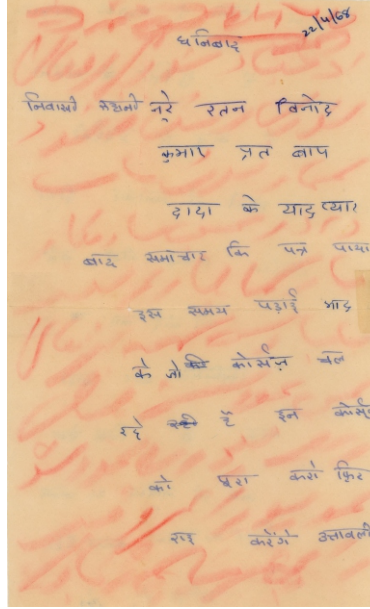 22/4/68
धनिबाद
निवासी नूरे रतन विनोद
कुमार प्रत बाप
दादा के याद प्यार
बाद समाचार कि पत्र पाया
इस समय पढ़ाई भाद्र
के जो कोर्सज़ चल
रहे हैं इन कोर्स
को पूरा करो फिर
राइ करेंगे उतावली